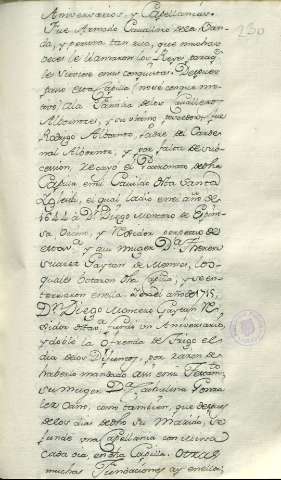 Aniversarios, y Capellanias.
Fue Armado Cavallero de la Ban
da, y persona tan rica, que muchas
veces le llamaron los Reyes, para q.
les sirviese en sus conquistas. Despues
paso esta Capilla (no se con que mo
tivo) a la familia de los Cavalleros
Albornozes, y su ultimo poseedor fue
Rodrigo Albornoz, Padre del Carde
nal Albornoz, y por falta de suc
cesion, recayo el Patronato de dha
Capilla en el Cavildo dha Santa
Iglesia, el qual la dio en el año de
1644 a Dn. Diego Montero de Espino
sa Osorio, y Rexidor perpetuo de
esta y a su muger Dª. Theresa
Suarez Gaytan de Monroi, los
quales dotaron dha Capilla, y se en
terraron en ella. En el año de 1715,
Dn. Diego Montero Gaytan Re
gidor fundo un Aniversario
y doble la Ofrenda de Trigo el
dia de los Difuntos, por razon de
haberlo mandado asi en su
su Muger Dª. Jacobina Gonza
lez Cano, como tambien, que despues
de los dias de dho su Marido, se
funde una Capellania con Misa
cada dia, en dha Capilla. Otras
muchas fundaciones ay en ella;